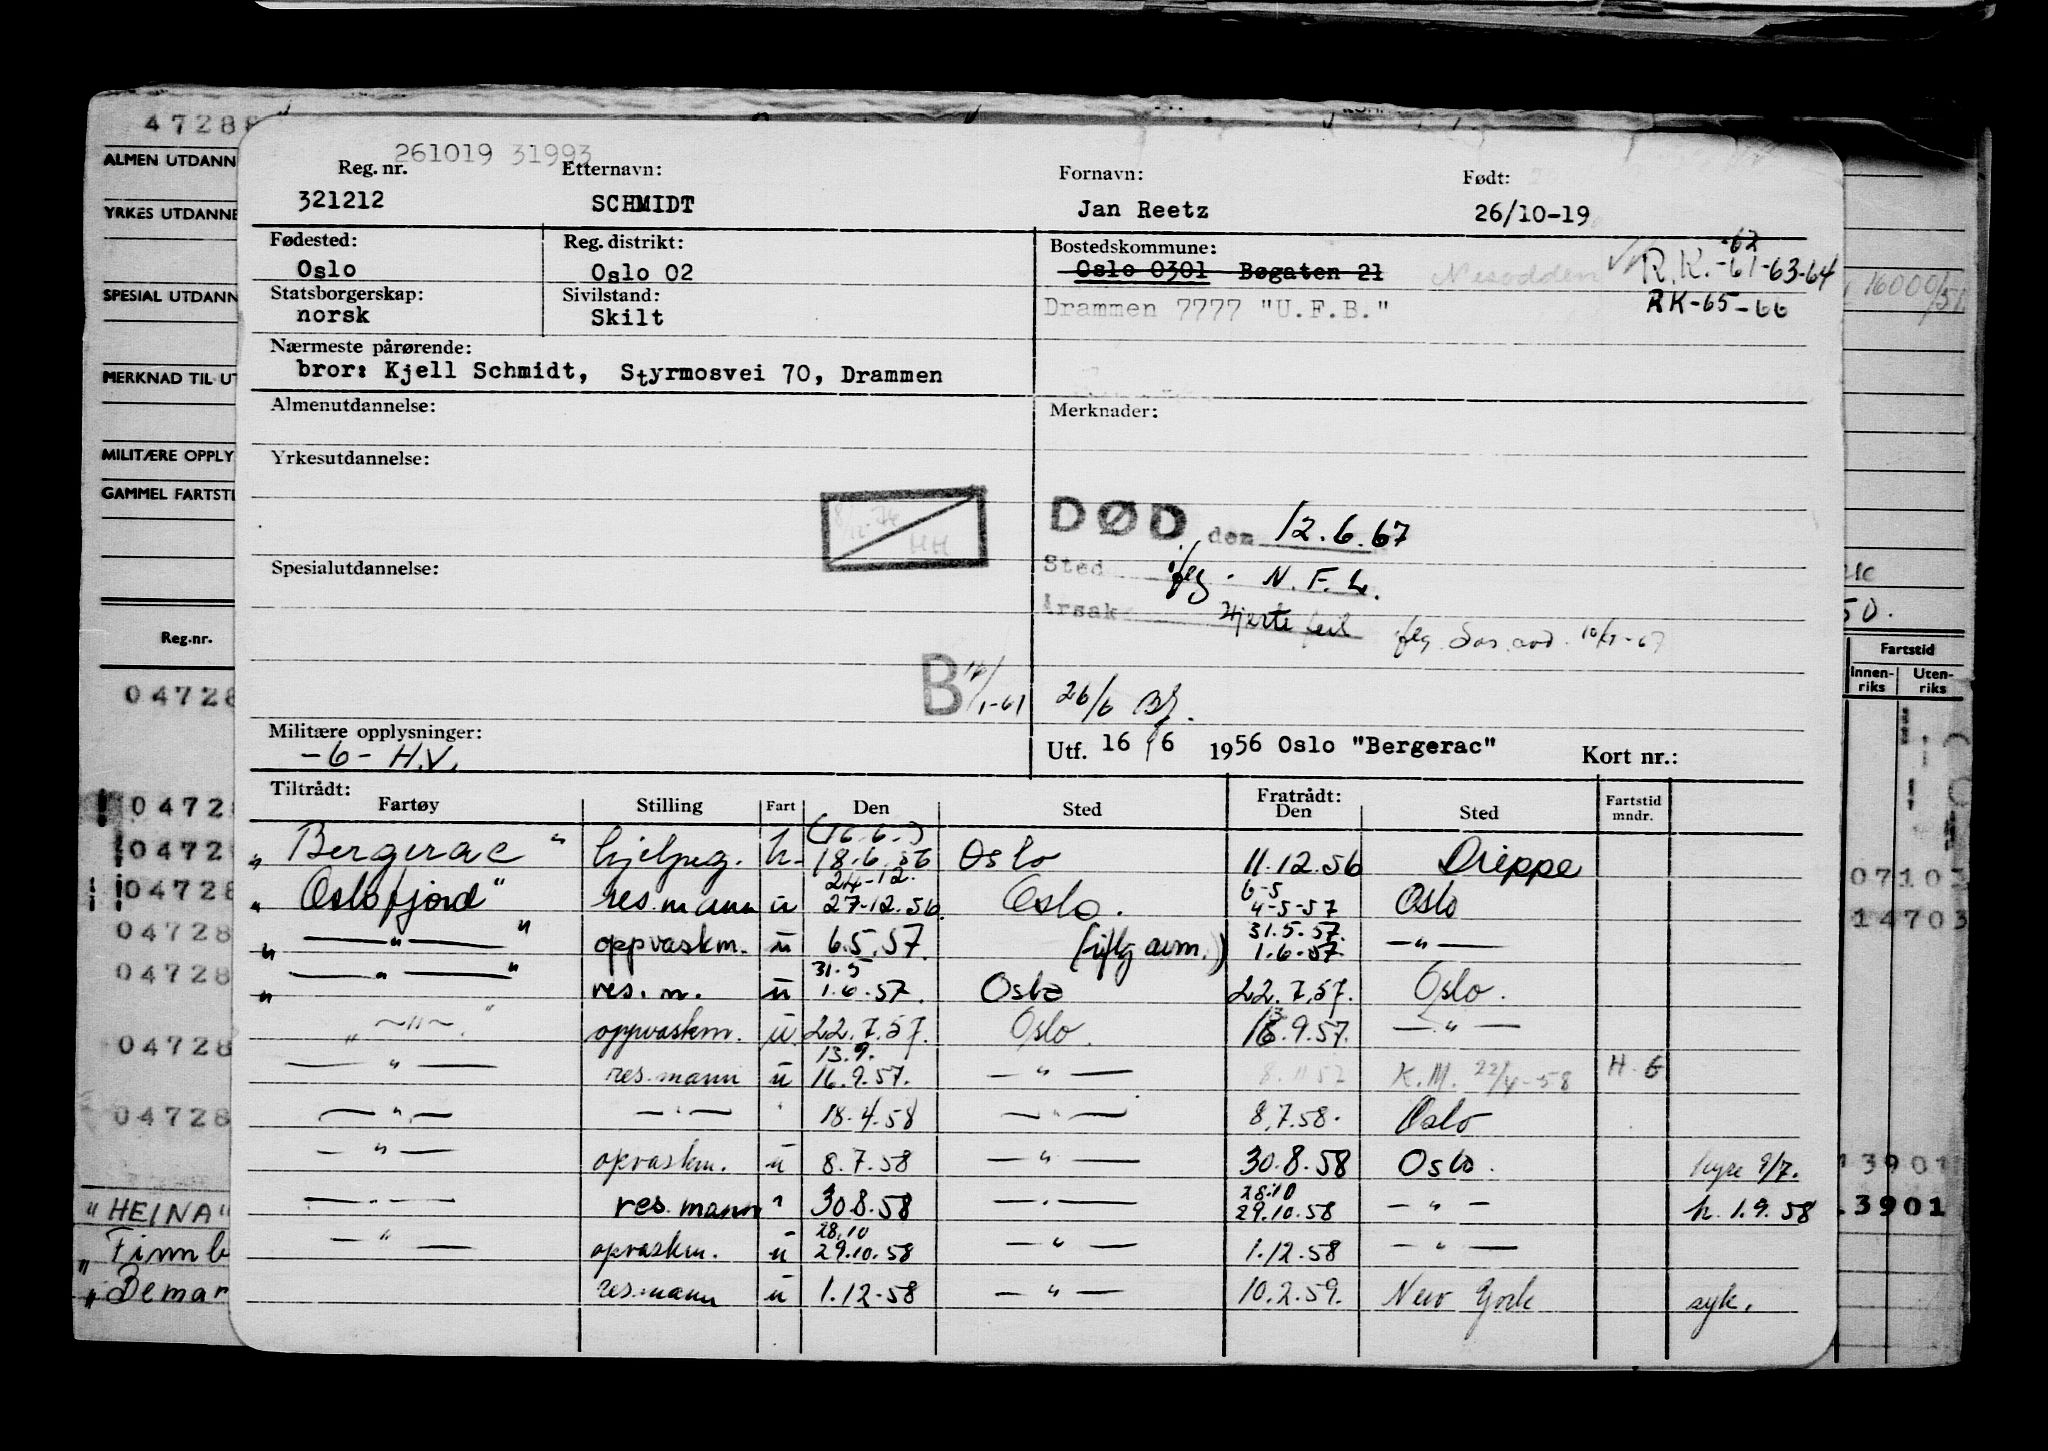 47288
ALMEN UTDANN
YRKES UTDANNE
SPESIAL UTDANN
MERKNAD TIL UT
MILITÆRE OPPLY
GAMMEL FARTSTI
Reg.nr.
04728
04728
04728
04728
04728
04728
04728
04728
"HEINA"
"Finnb
"Bemar
261019 31993
Reg. nr. Etternavn: Fornavn: Født:
321212 SCHMIDT Jan Reetz 26/10-19
Fødested: Reg. distrikt: Bostedskommune:
Oslo Oslo 02 Oslo 0301 Bøgaten 21 Nesodden R.K.-61-63-64
-62
Statsborgerskap: Sivilstand:
norsk Skilt Drammen 7777 "U.F.B." RK-65-66
Nærmeste pårørende:
bror: Kjell Schmidt, Styrmosvei 70, Drammen
Almenutdannelse: Merknader:
Yrkesutdannelse:
HH
DØD den 12.6.67
Sted iflg. N.F.L.
Spesialutdannelse:
Årsak Hjertefeil iflg
B 1-61 26/6
Militære opplysninger:
-6- H.V.
Utf. 16/6 1956 Oslo "Bergerac" Kort nr.:
Tiltrådt: Fratrådt:
Fartøy Stilling Fart Den Sted Den Sted Fartstid mndr.
(16.6.)
"Bergerac" hjelpeg. h. 18.6.56 Oslo 11.12.56 Dieppe
24-12. 6-5
"Oslofjord" res.mann u 27-12.56. Oslo. 4-5-57 Oslo
31.5-57.
" —"— " oppvaskm. u 6.5.57. (iflg avm.) 1.6-57. —"—
31.5
" —"— " res.m. u 1.6.57. Oslo 22.7.57. Oslo.
" —"— " oppvaskm. u. 22.7.57. Oslo. 13.9.57. —"—
13.9.
—"— res.mann u 16.9.57. —"— 8.11 57 K.M. 22/4-58 H. 6
—"— —"— " 18.4.58 —"— 8.7.58. Oslo
—"— opvaskm. u 8.7.58 —"— 30.8.58 Oslo. hyre 9/7.
28.10
—"— res.mann " 30.8.58 —"— 29.10.58 —"— h. 1.9.58
28.10
—"— opvaskm. u 29.10.58 —"— 1.12.58 —"—
res.mann u 1.12-58 —"— 10.2.59. New York syk.
16000/51
50.
Fartstid
Innen-riks Uten-riks
07103
14703
13901
.3901